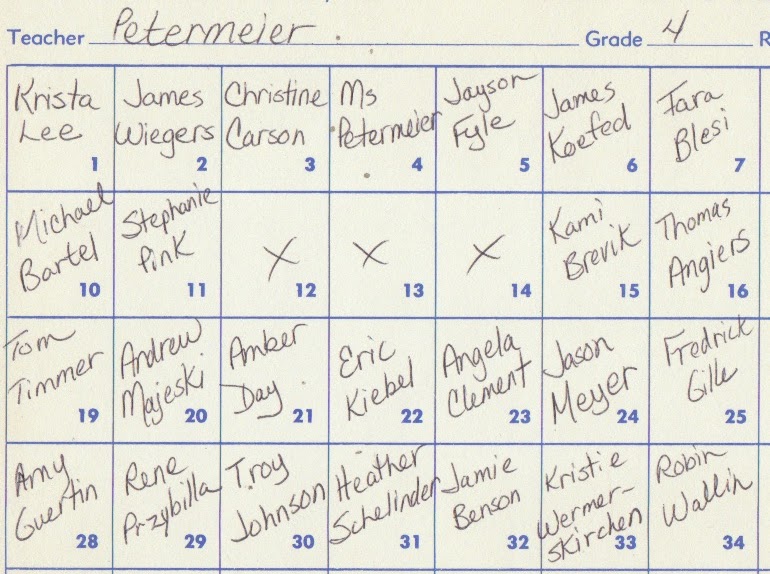 Teacher Petermeier Grade 4 R
Krista
Lee
1
James
Wiegers
2
Christine
Carson
3
Ms
Petermeier
4
Jayson
Fyle
5
James
Koefed
6
Tara
Blesi
7
Michael
Bartel
10
Stephanie
Pink
11
X
12
X
13
X
14
Kami
Brevik
15
Thomas
Angiers
16
Tom
Timmer
19
Andrew
Majeski
20
Amber
Day
21
Eric
Kiebel
22
Angela
Clement
23
Jason
Meyer
24
Fredrick
Gille
25
Amy
Guertin
28
Rene
Przybilla
29
Troy
Johnson
30
Heather
Schelinder
31
Jamie
Benson
32
Kristie
Wermer-
skirchen
33
Robin
Wallin
34